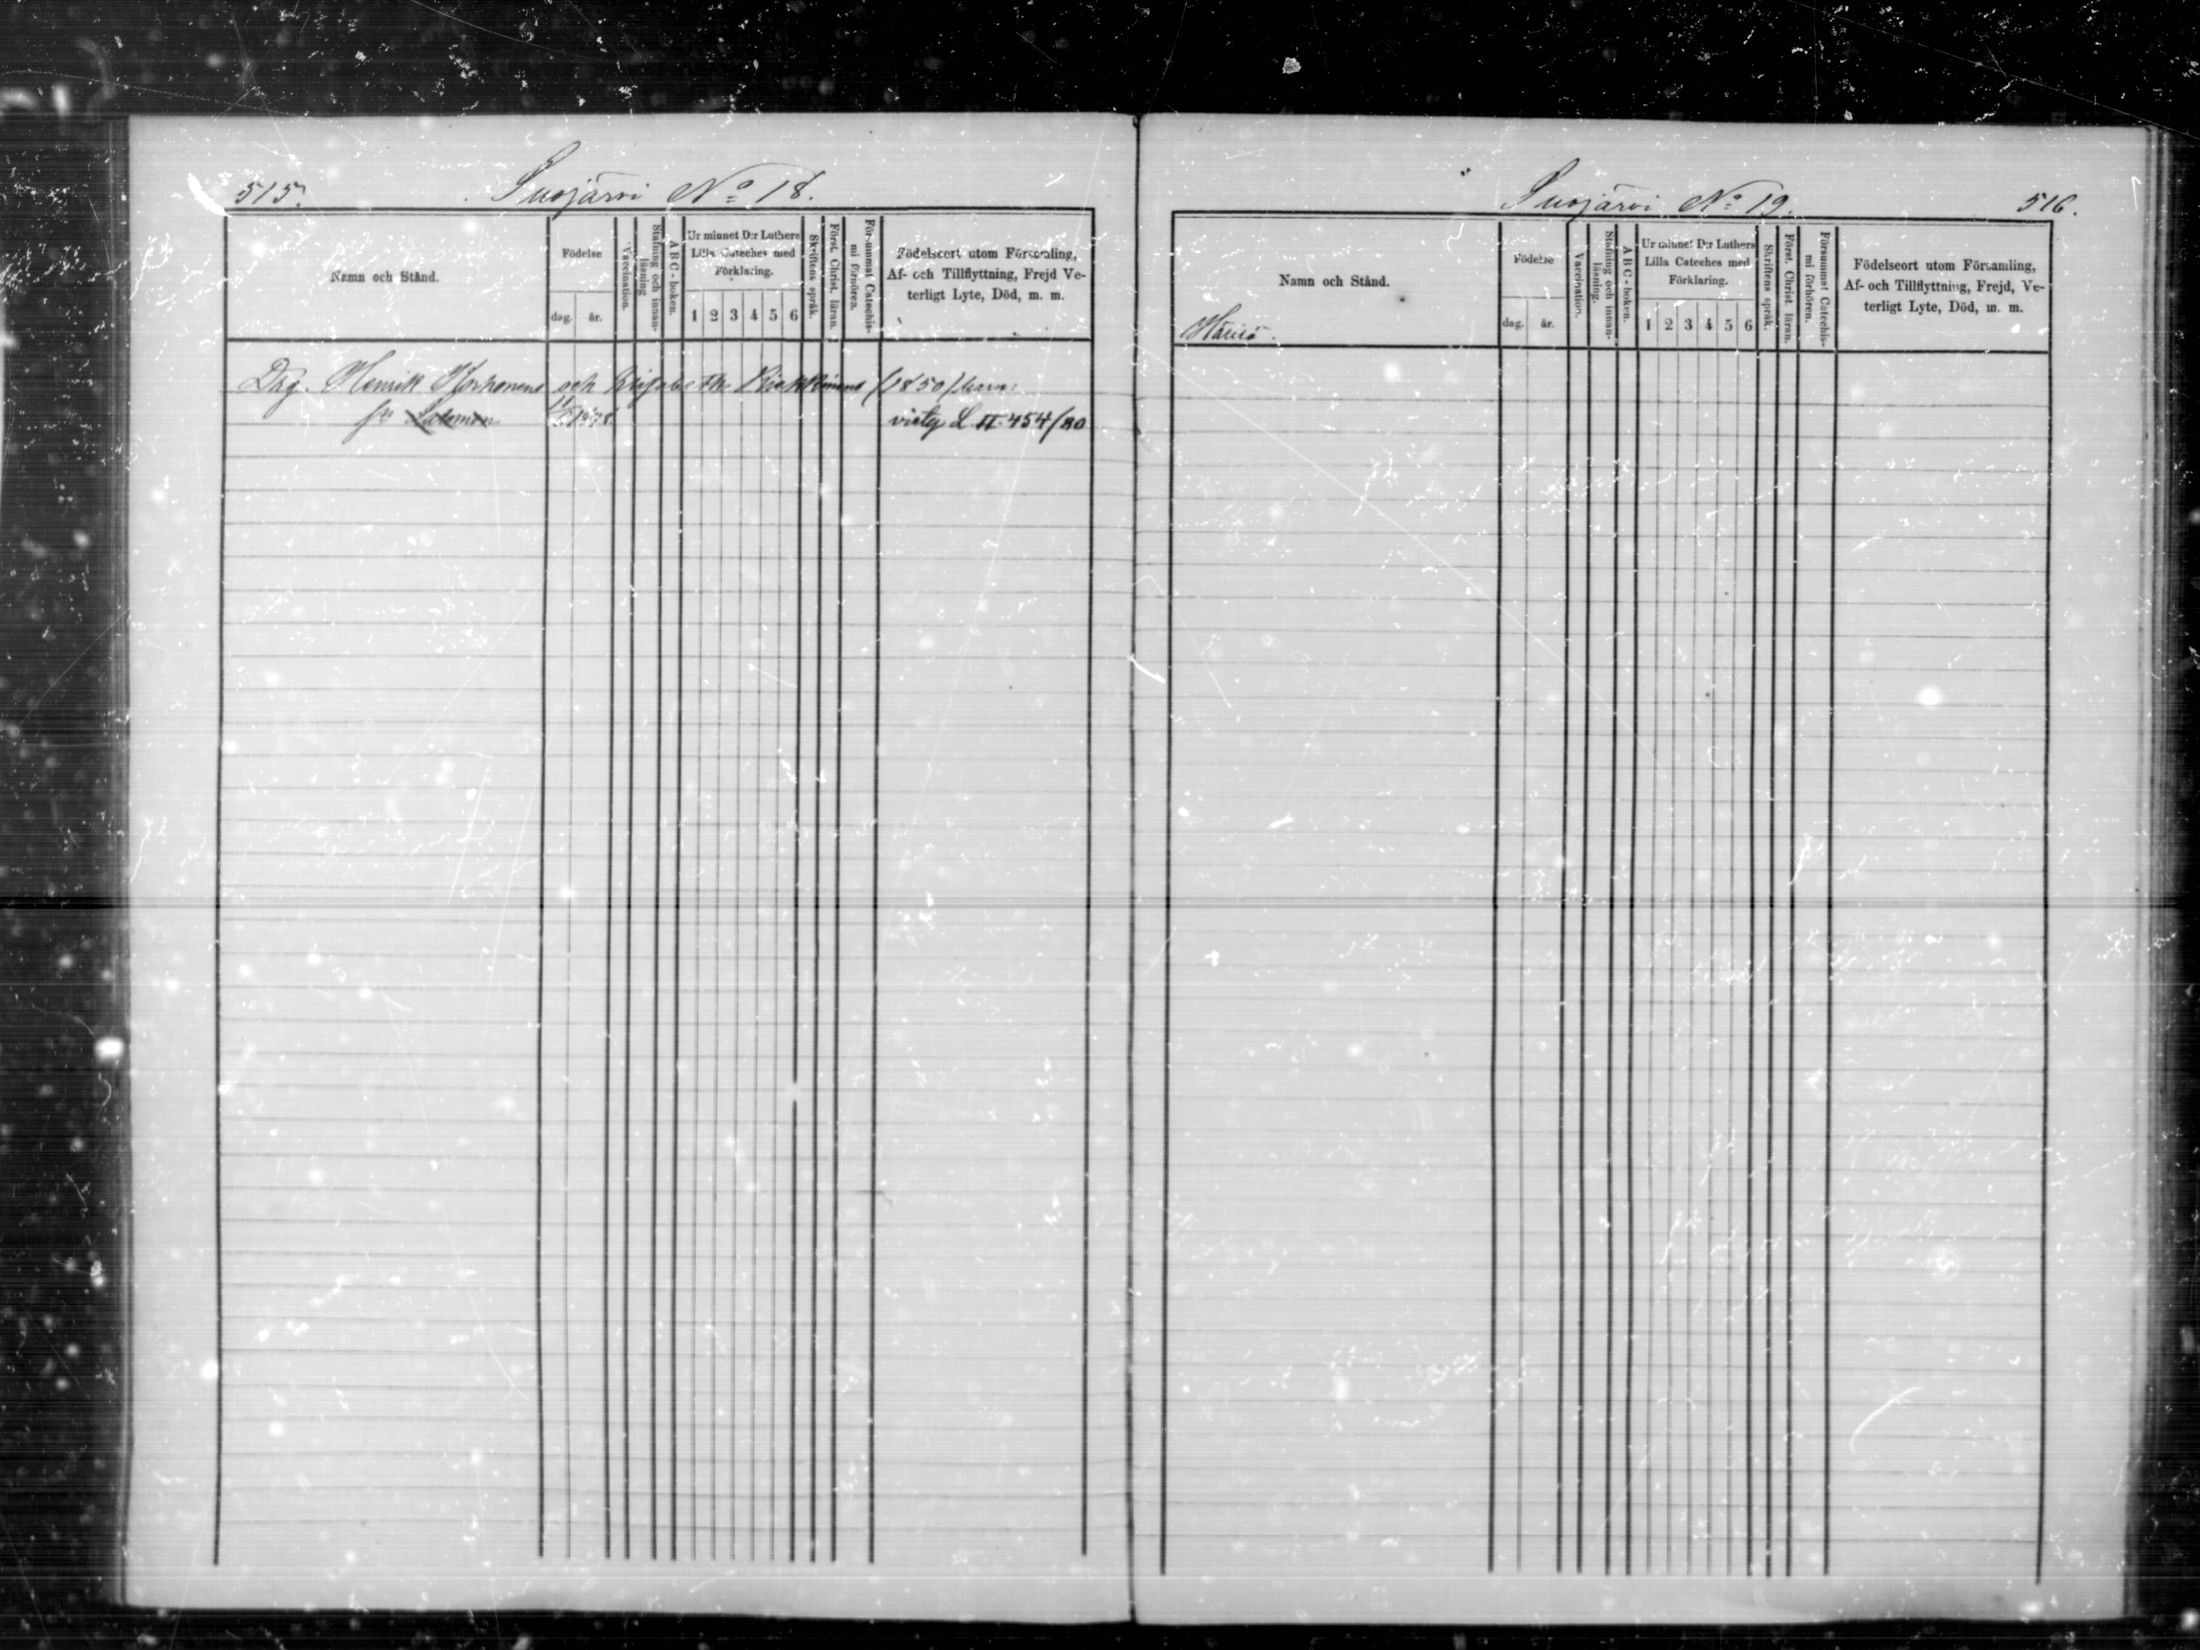 515.
Suojärvi No 18.
Namn och Stånd.
Födelse
dag. år.
Vaccination.
Stafning och innan-läsning
ABC-boken.
Ur minnet D:r Luthers
Lilla Cateches med
Förklaring.
1 2 3 4 5 6
Skriftens språk.
Först. Christ. läran.
Försummat Catechis-
mi förhören.
Födelseort utom Församling,
Af- och Tillflyttning, Frejd Ve-
terligt Lyte, Död, m. m.
Dag. Henrik Korhonens och (1850) barn:
Salomon 1878 L II 454/80
Suojärvi No 19.
516.
Namn och Stånd.
Födelse
dag. år.
Vaccination.
Stafning och innan-
läsning.
ABC-boken.
Ur minnet D:r Luthers
Lilla Cateches med
Förklaring.
1 2 3 4 5 6
Skriftens språk.
Först. Christ. läran.
Försummat Catechis-
mi förhören.
Födelseort utom Församling,
Af- och Tillflyttning, Frejd, Ve-
terligt Lyte, Död, m. m.